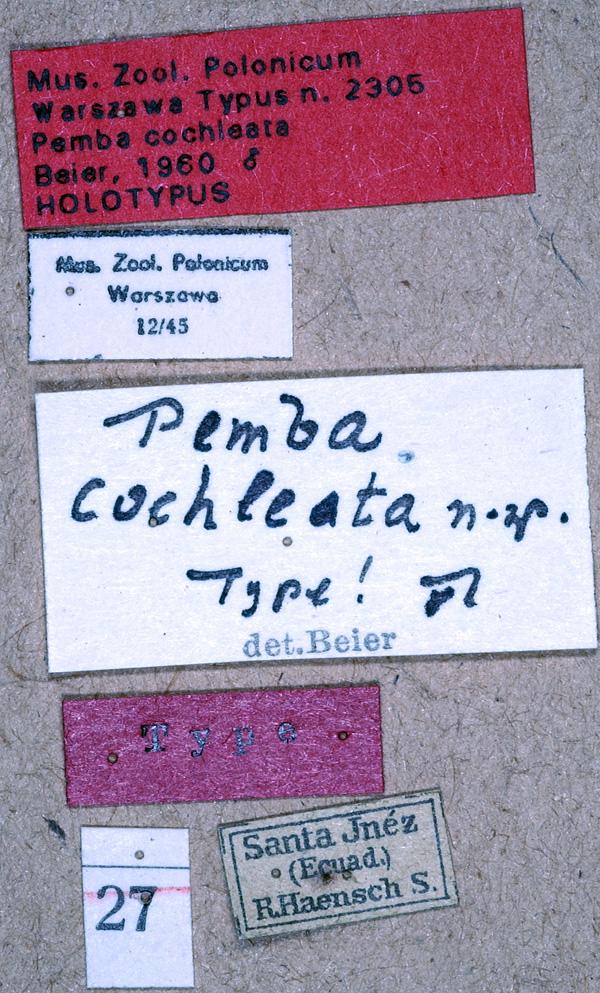 Mus. Zool. Polonicum
Warszawa Typus n. 2305
Pemba cochleata
Beier, 1960 ♂
HOLOTYPUS
Mus. Zool. Polonicum
Warszawa
12/45
Pemba
cochleata n.sp.
Type!
det.Beier
Type
27
Santa Jnéz
(Ecuad.)
R.Haensch S.